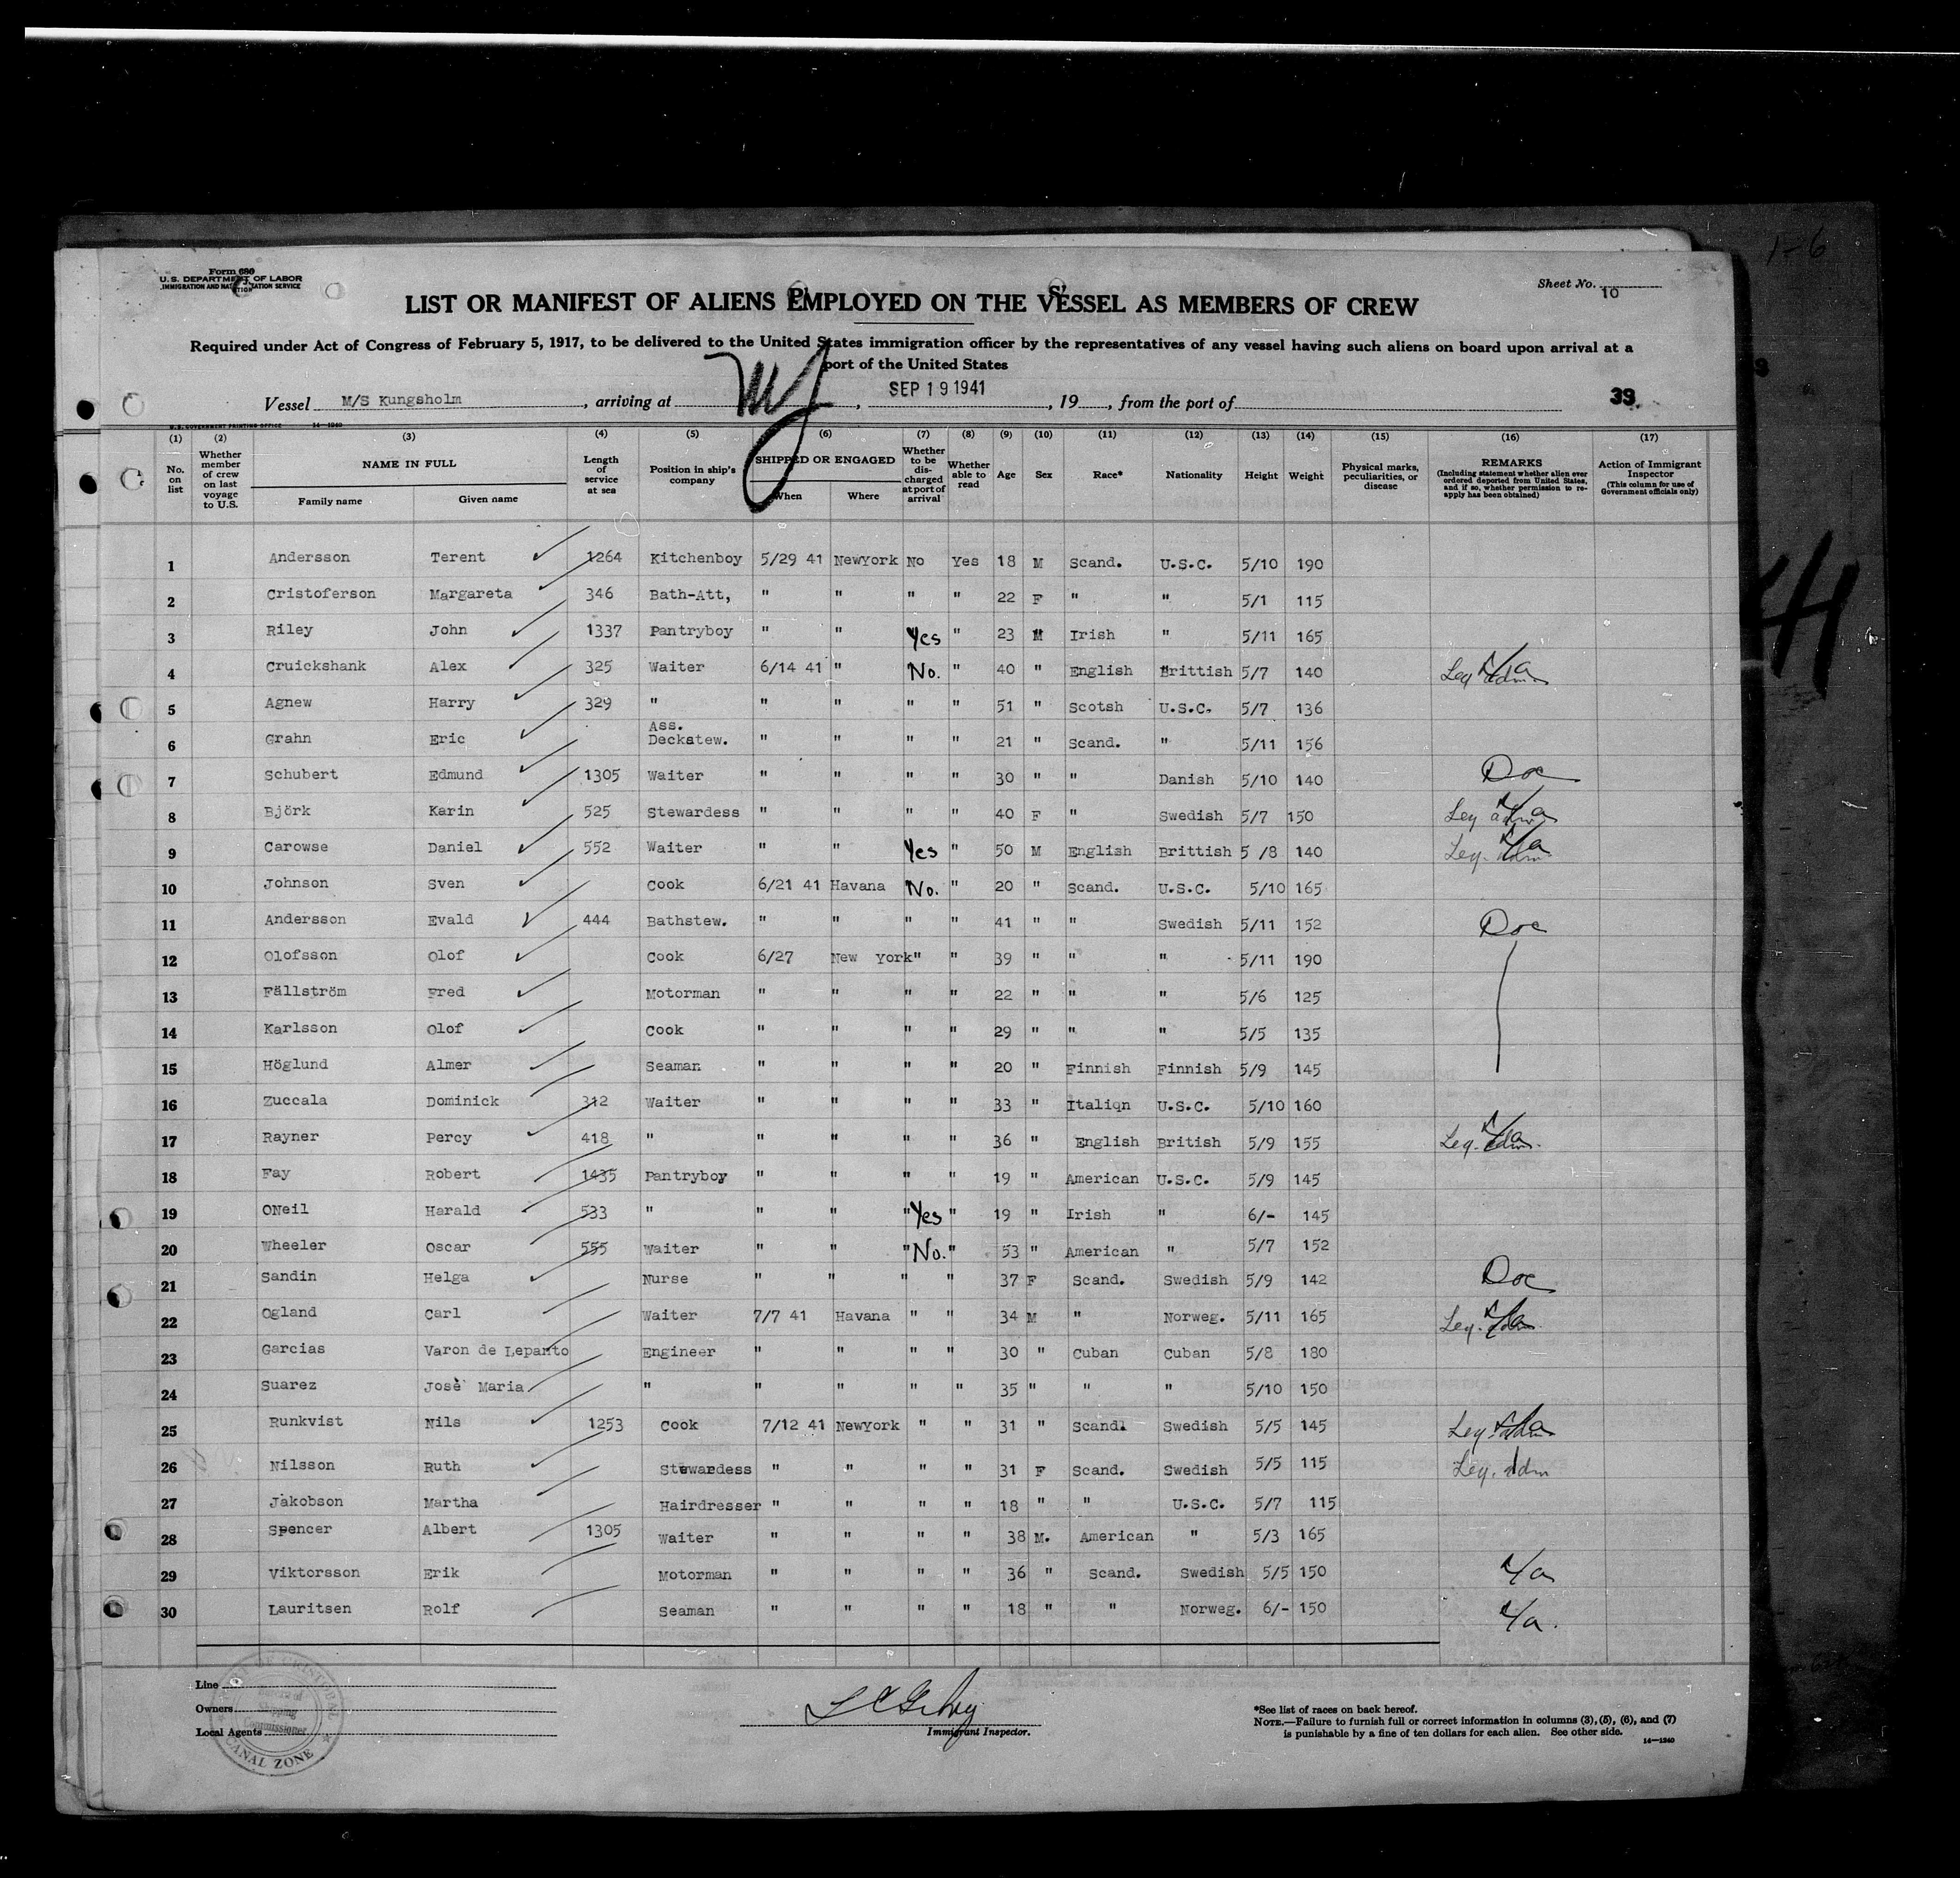 Form 680
U.S. DEPARTMENT OF LABOR
IMMIGRATION AND NATURALIZATION SERVICE
Sheet No. 10
LIST OR MANIFEST OF ALIENS EMPLOYED ON THE VESSEL AS MEMBERS OF CREW
Required under Act of Congress of February 5, 1917, to be delivered to the United States immigration officer by the representatives of any vessel having such aliens on board upon arrival at a
port of the United States
Vessel M/S Kungsholm, arriving at NY, SEP 19 1941, 19, from the port of 39
U.S. GOVERNMENT PRINTING OFFICE 14—1240
(1) (2) (3) (4) (5) (6) (7) (8) (9) (10) (11) (12) (13) (14) (15) (16) (17)
No. on list
Whether member of crew on last voyage to U.S.
NAME IN FULL
Family name Given name
Length of service at sea
Position in ship's company
SHIPPED OR ENGAGED
When Where
Whether to be discharged at port of arrival
Whether able to read
Age Sex Race* Nationality Height Weight
Physical marks, peculiarities, or disease
REMARKS
(Including statement whether alien ever ordered deported from United States, and if so, whether permission to re-apply has been obtained)
Action of Immigrant Inspector
(This column for use of Government officials only)
1 Andersson Terent 1264 Kitchenboy 5/29 41 NewYork No Yes 18 M Scand. U.S.C. 5/10 190
2 Cristoferson Margareta 346 Bath-Att, " " " " 22 F " " 5/1 115
3 Riley John 1337 Pantryboy " " Yes " 23 M Irish " 5/11 165
4 Cruickshank Alex 325 Waiter 6/14 41 " No. " 40 " English Brittish 5/7 140 Leg adm
5 Agnew Harry 329 " " " " " 51 " Scotsh U.S.C. 5/7 136
6 Grahn Eric Ass. Deckstew. " " " " 21 " Scand. " 5/11 156
7 Schubert Edmund 1305 Waiter " " " " 30 " " Danish 5/10 140 Doc
8 Björk Karin 525 Stewardess " " " " 40 F " Swedish 5/7 150 Leg adm
9 Carowse Daniel 552 Waiter " " Yes " 50 M English Brittish 5 /8 140 Leg. adm
10 Johnson Sven Cook 6/21 41 Havana No. " 20 " Scand. U.S.C. 5/10 165
11 Andersson Evald 444 Bathstew. " " " " 41 " " Swedish 5/11 152 Doc
12 Olofsson Olof Cook 6/27 New York " " 39 " " " 5/11 190
13 Fällström Fred Motorman " " " " 22 " " " 5/6 125
14 Karlsson Olof Cook " " " " 29 " " " 5/5 135
15 Höglund Almer Seaman " " " " 20 " Finnish Finnish 5/9 145
16 Zuccala Dominick 312 Waiter " " " " 33 " Italiqn U.S.C. 5/10 160
17 Rayner Percy 418 " " " " " 36 " English British 5/9 155 Leg. adm.
18 Fay Robert 1435 Pantryboy " " " " 19 " American U.S.C. 5/9 145
19 ONeil Harald 533 " " " " Yes " 19 " Irish " 6/- 145
20 Wheeler Oscar 555 Waiter " " " No. " 53 " American " 5/7 152
21 Sandin Helga Nurse " " " " 37 F Scand. Swedish 5/9 142 Doc
22 Ogland Carl Waiter 7/7 41 Havana " " 34 M " Norweg. 5/11 165 Leg. adm
23 Garcias Varon de Lepanto Engineer " " " " 30 " Cuban Cuban 5/8 180
24 Suarez Josè Maria " " " " " 35 " " " 5/10 150
25 Runkvist Nils 1253 Cook 7/12 41 NewYork " " 31 " Scand. Swedish 5/5 145 Leg adm
26 Nilsson Ruth Stewardess " " " " 31 F Scand. Swedish 5/5 115 Leg. adm
27 Jakobson Martha Hairdresser " " " " 18 " " U.S.C. 5/7 115
28 Spencer Albert 1305 Waiter " " " " 38 M. American " 5/3 165
29 Viktorsson Erik Motorman " " " " 36 " Scand. Swedish 5/5 150 4/a
30 Lauritsen Rolf Seaman " " " " 18 " " Norweg. 6/- 150 4/a.
Line
Owners
Local Agents
Immigrant Inspector.
*See list of races on back hereof.
NOTE.—Failure to furnish full or correct information in columns (3), (5), (6), and (7)
is punishable by a fine of ten dollars for each alien. See other side.
14—1240
Shipping Commissioner
CANAL ZONE
1-6